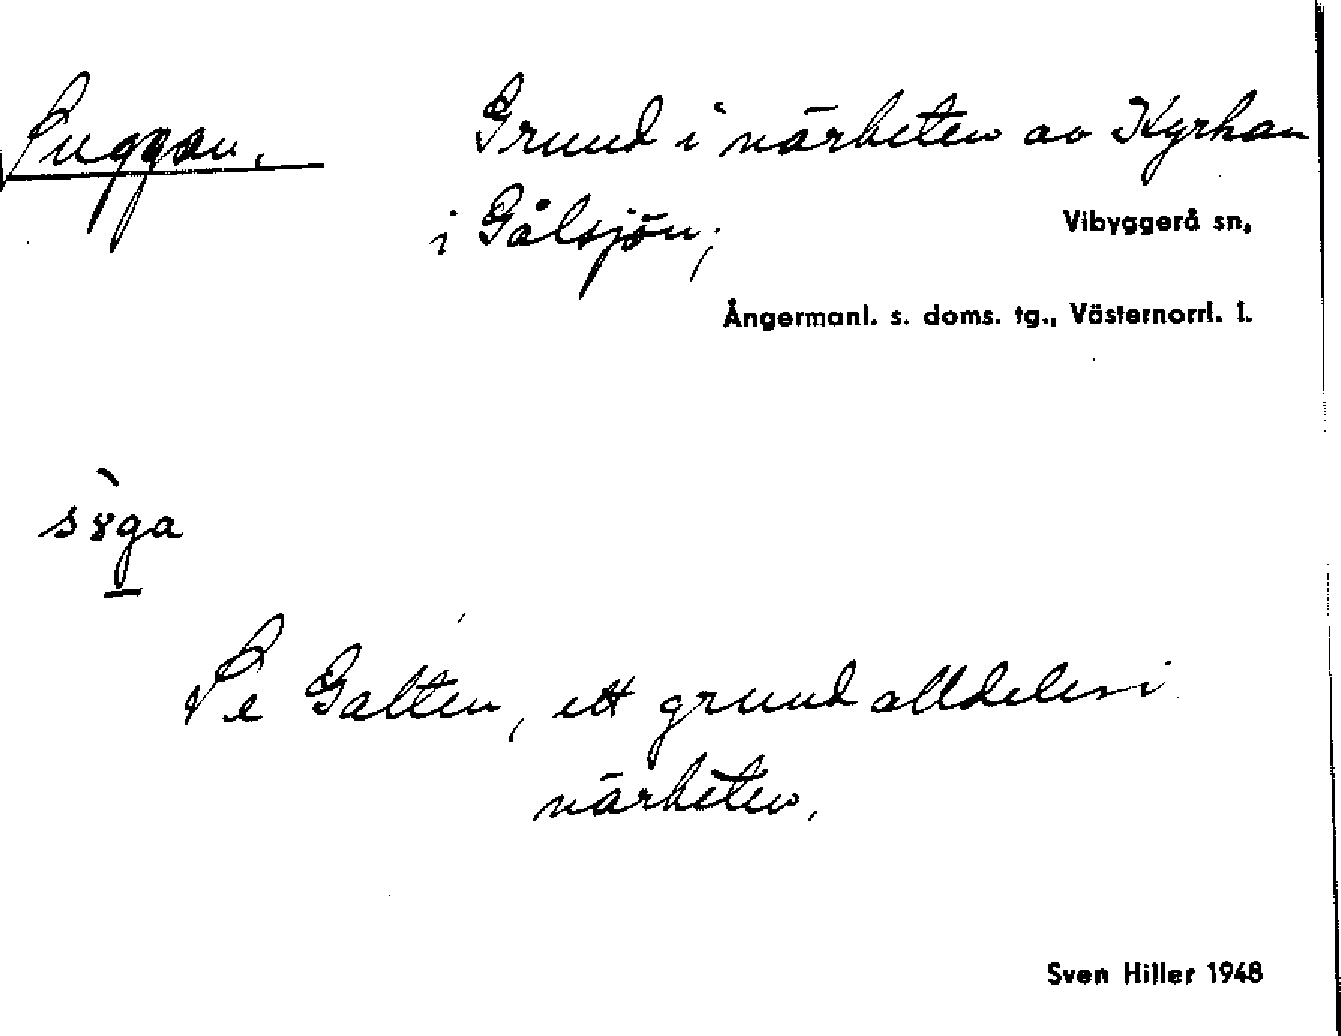 Suggan. Grund i närheten av Kyrkan
i Gålsjön,
Vibyggerå sn,
Ångermanl. s. doms. tg., Västernorrl. l.
Se Galten, ett grund alldeles i
närheten.
Sven Hiller 1948